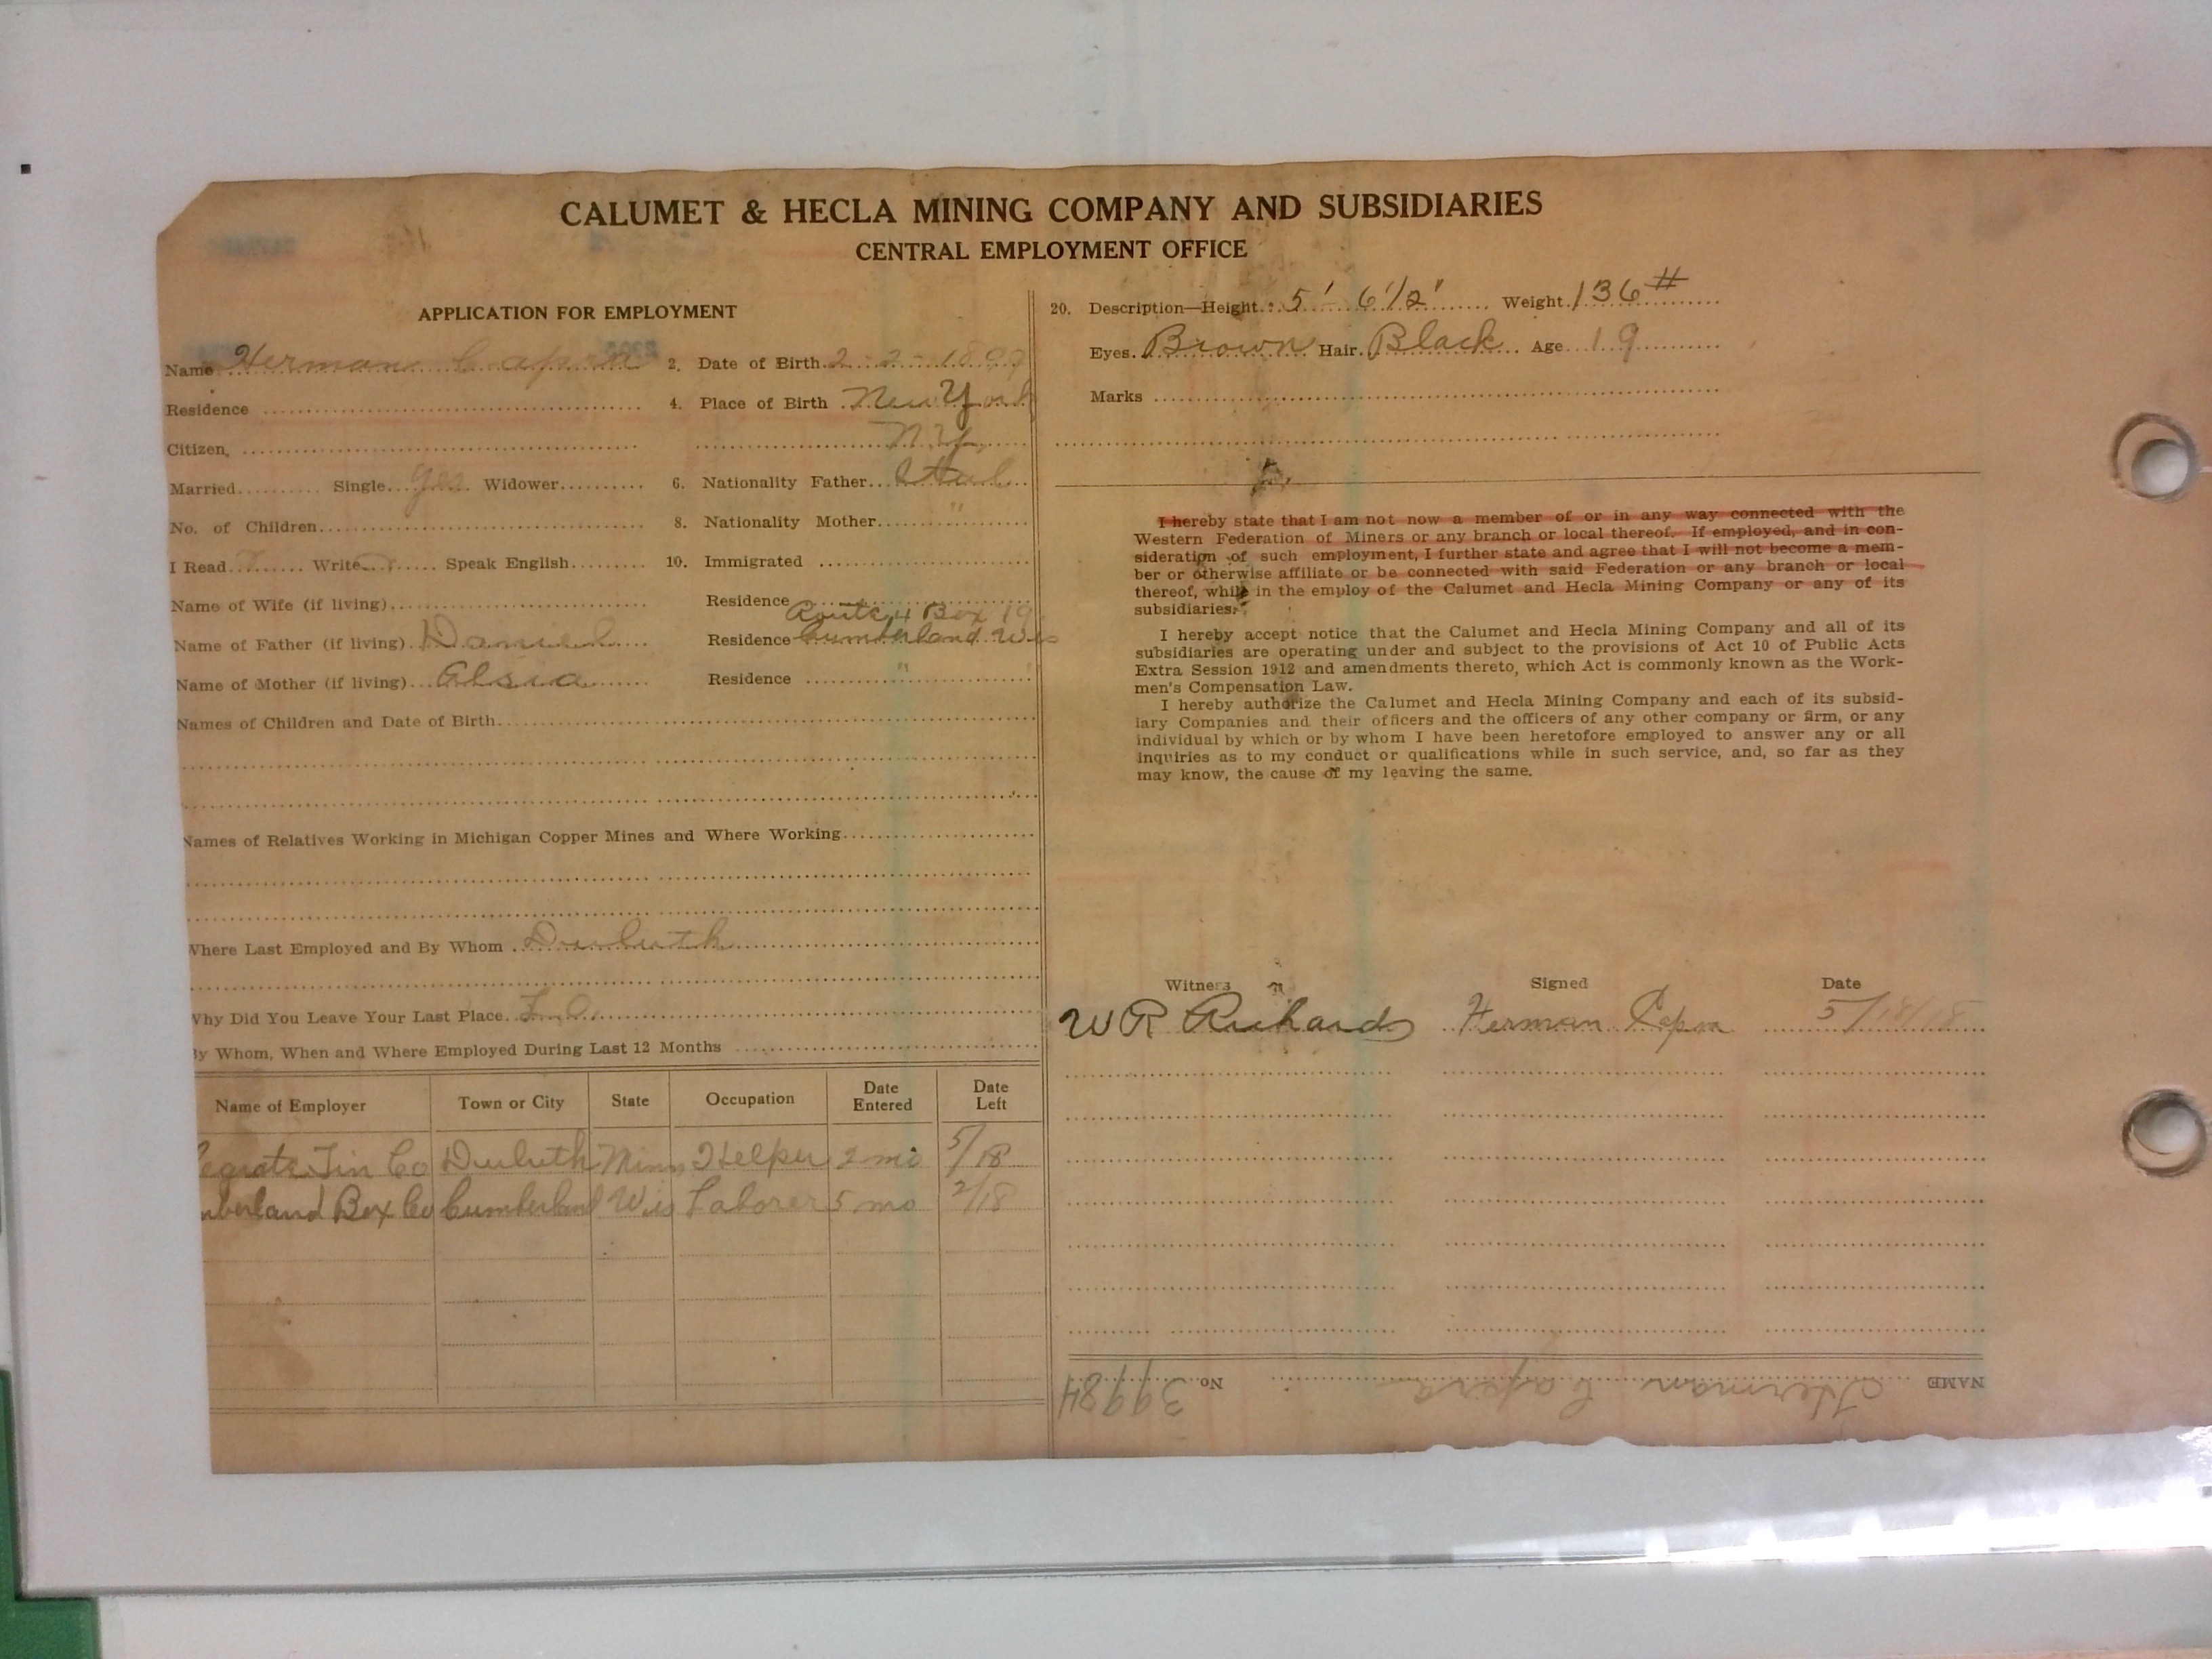 CALUMET & HECLA MINING COMPANY AND SUBSIDIARIES
CENTRAL EMPLOYMENT OFFICE
APPLICATION FOR EMPLOYMENT
Name Herman 2. Date of Birth 2-2-1899
Residence 4. Place of Birth New York
Citizen, N.Y.
Married Single Yes Widower 6. Nationality Father Ital
No. of Children 8. Nationality Mother "
I Read Write Speak English 10. Immigrated
Name of Wife (if living) Residence
Route 4 Box 19
Name of Father (if living) Daniel Residence Cumberland Wis
Name of Mother (if living) Alsia Residence "
Names of Children and Date of Birth
Names of Relatives Working in Michigan Copper Mines and Where Working
Where Last Employed and By Whom Duluth
Why Did You Leave Your Last Place
By Whom, When and Where Employed During Last 12 Months
Name of Employer Town or City State Occupation Date Entered Date Left
Tin Co Duluth Minn Helper 2 mo 5/18
mberland Box Co Cumberland Wis Laborer 5 mo 2/18
20. Description—Height: 5' - 6 1/2' Weight 136 #
Eyes. Brown Hair. Black Age 19
Marks
I hereby state that I am not now a member of or in any way connected with the
Western Federation of Miners or any branch or local thereof. If employed, and in con-
sideration of such employment, I further state and agree that I will not become a mem-
ber or otherwise affiliate or be connected with said Federation or any branch or local
thereof, while in the employ of the Calumet and Hecla Mining Company or any of its
subsidiaries.
I hereby accept notice that the Calumet and Hecla Mining Company and all of its
subsidiaries are operating under and subject to the provisions of Act 10 of Public Acts
Extra Session 1912 and amendments thereto, which Act is commonly known as the Work-
men's Compensation Law.
I hereby authorize the Calumet and Hecla Mining Company and each of its subsid-
iary Companies and their officers and the officers of any other company or firm, or any
individual by which or by whom I have been heretofore employed to answer any or all
inquiries as to my conduct or qualifications while in such service, and, so far as they
may know, the cause of my leaving the same.
Witness Signed Date
W R Richards Herman 5/18/18
NAME Herman Capra No. 39984